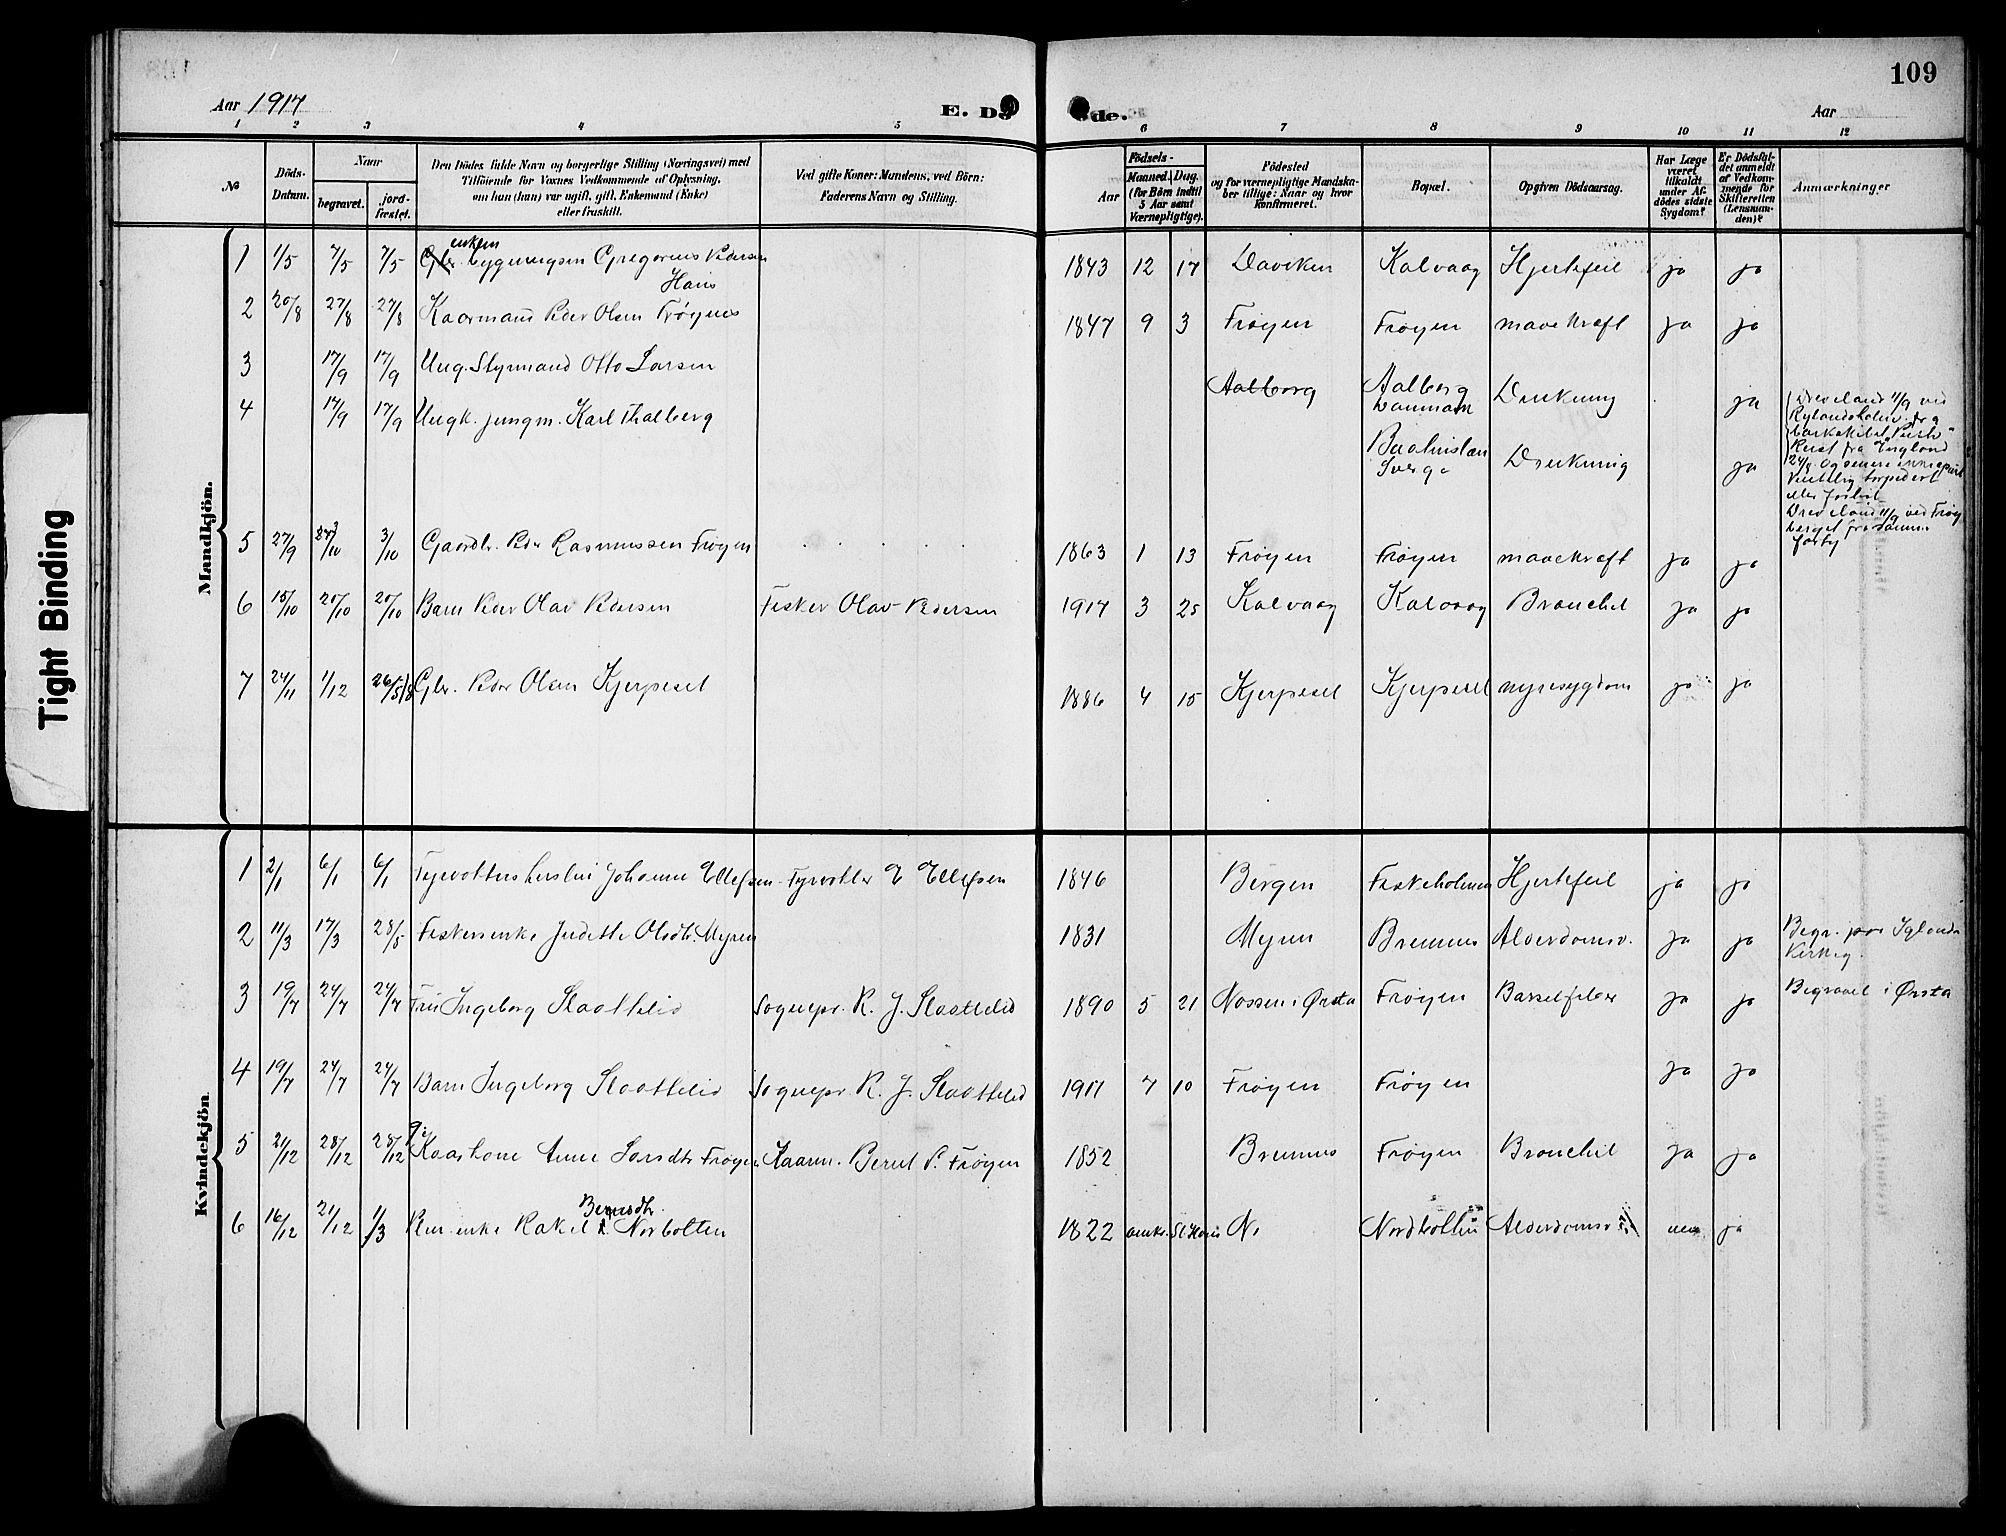 109
Aar 1917
E. Dö
de.
Aar
1 2 3 4 5 6 7 8 9 10 11 12
No
Döds-
Datum.
Naar
begravet.
jord-
fæstet.
Den Dödes fulde Navn og borgerlige Stilling (Næringsvei) med
Tilföiende for Voxnes Vedkommende af Oplysning,
om han (hun) var ugift, gift, Enkemand (Enke)
eller fraskilt.
Ved gifte Koner: Mandens, ved Börn:
Faderens Navn og Stilling.
Aar
Födsels-
Maaned. Dag.
(for Börn indtil
5 Aar samt
Værnepligtige).
Födested
og for værnepligtige Mandska-
ber tillige: Naar og hvor
konfirmeret.
Bopæl.
Opgiven Dödsaarsag.
Har Læge
været
tilkaldt
under Af-
dödes sidste
Sygdom?
Er Dödsfal-
det anmeldt
af Vedkom-
mende for
Skifteretten
(Lensman-
den)?
Anmærkninger
Mandkjön.
enkem
1 1/5 7/5 7/5 Gbr. bygningsm Gregorius Pedersen 1843 12 17 Daviken Kalvaag Hjertefeil ja ja
Hans
2 20/8 27/8 27/8 Kaarmand Peder Olsen Frøynes 1847 9 3 Frøyen Frøyen mavekræft ja ja
3 17/9 17/9 Ung. Styrmand Otto Larsen Aalborg Aalborg Danmark Drukning ja
4 17/9 17/9 Ungk. jungm. Karl Thalberg Sverge Drukning ja
Drev iland 11/9 ved
Rylandsholm. fra
Reist fra England
24/8. og senere
torpedert
eller forlist
Drev iland 11/9 ved Frøy
berget fra samme
fartøy
5 27/9 3/10 3/10 Gaardbr. Peder Rasmussen Frøyen 1863 1 13 Frøyen Frøyen mavekræft ja ja
6 15/10 20/10 20/10 Barn Peder Olav Pedersen Fisker Olav Pedersen 1917 3 25 Kalvaag Kalvaag Bronchit ja ja
7 24/11 1/12 26/5 18 Gbr. Peder Olsen Kjerpeset 1886 4 15 Kjerpeset Kjerpeset nyresygdom ja ja
Kvindekjön.
1 2/1 6/1 6/1 Fyrvogters hustru Johanne Ellefsen Fyrvokter E Ellefsen 1846 Bergen Fiskeholmen Hjertefeil ja ja
2 11/3 17/3 28/5 Fiskersenke Judithe Olsdtr. Myren 1831 Myren Bremnes Alderdomsv. ja ja Begr. paa Iglands
Kirkeg.
3 19/7 24/7 24/7 Fru Ingeborg Slaattelid Sognepr. R. J. Slaattelid 1890 5 21 Nossen i Ørsta Frøyen Barselfeber ja ja Begravet i Ørsta
4 19/7 24/7 24/7 Barn Ingeborg Slaattelid Sognepr. R. J. Slaattelid 1917 7 10 Frøyen Frøyen ja ja
5 21/12 28/12 28/12 Kaarkone Anne Larsdtr Frøyen Kaarm. Bernt P. Frøyen 1852 Bremnes Frøyen Bronchit ja ja
Berntsdtr.
6 16/12 21/12 1/3 enke Rakel Norbotten 1822 omkr. St Hans N. Nordbotten Alderdomsv nei ja
Tight Binding